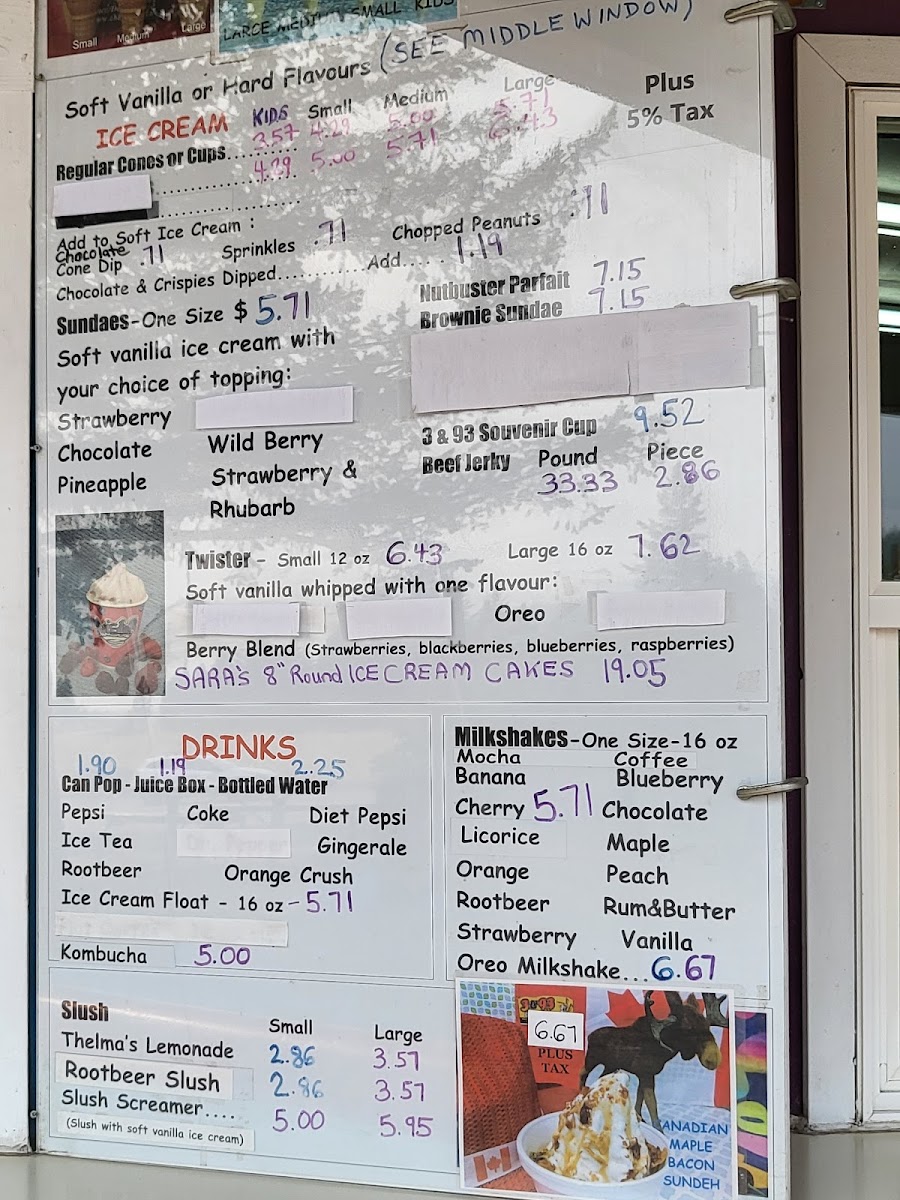 Small Medium Large
LARGE MEDIUM SMALL KIDS
(SEE MIDDLE WINDOW)
Soft Vanilla or Hard Flavours
ICE CREAM KIDS Small Medium Large
Plus
5% Tax
Regular Cones or Cups........ 3.57 4.29 5.00 5.71
4.29 5.00 5.71 6.43
Add to Soft Ice Cream :
Chocolate
Cone Dip .71 Sprinkles .71 Chopped Peanuts .71
Chocolate & Crispies Dipped............Add..... 1.19
Sundaes-One Size $ 5.71
Soft vanilla ice cream with
your choice of topping:
Strawberry
Chocolate Wild Berry
Pineapple Strawberry &
Rhubarb
Nutbuster Parfait 7.15
Brownie Sundae 7.15
3 & 93 Souvenir Cup 9.52
Beef Jerky Pound Piece
33.33 2.86
Twister - Small 12 oz 6.43 Large 16 oz 7.62
Soft vanilla whipped with one flavour:
Oreo
Berry Blend (Strawberries, blackberries, blueberries, raspberries)
SARA'S 8" Round ICE CREAM CAKES 19.05
DRINKS
1.90 1.19 2.25
Can Pop - Juice Box - Bottled Water
Pepsi Coke Diet Pepsi
Ice Tea Gingerale
Rootbeer Orange Crush
Ice Cream Float - 16 oz - 5.71
Kombucha 5.00
Milkshakes-One Size-16 oz
Mocha Coffee
Banana Blueberry
Cherry 5.71 Chocolate
Licorice Maple
Orange Peach
Rootbeer Rum&Butter
Strawberry Vanilla
Oreo Milkshake... 6.67
Slush Small Large
Thelma's Lemonade 2.86 3.57
Rootbeer Slush 2.86 3.57
Slush Screamer.... 5.00 5.95
(Slush with soft vanilla ice cream)
6.67
PLUS
TAX
CANADIAN
MAPLE
BACON
SUNDEH